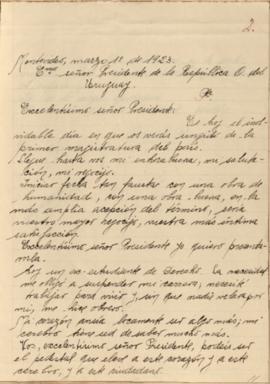 2.
Montevideo, marzo 1º de 1923.
Exmo señor Presidente de la República O. del
Uruguay.
Excelentísimo señor Presidente:
Es hoy el inol-
vidable día en que os veréis ungido de la
primer magistratura del país.
Llegue hasta vos mi enhorabuena, mi saluta-
ción, mi regocijo.
Iniciar fecha tan fausta con una obra de
humanidad, con una obra buena, en la
más amplia acepción del término, sería
vuestro mayor regocijo, vuestra más íntima
satisfacción.
Excelentísimo señor Presidente yo quiero presentá-
rosla.
Soy un ex-estudiante de Derecho. La necesidad
me obligó a suspender mi carrera; necesité
trabajar para vivir y
mí, me hice obrero.
Mi corazón ansía locamente ser algo más; mi
cerebro tiene sed de saber mucho más.
Vos, excelentísimo señor Presidente, podéis ser
el pedestal que eleve a este corazón y a este
cerebro, y a este ciudadano.